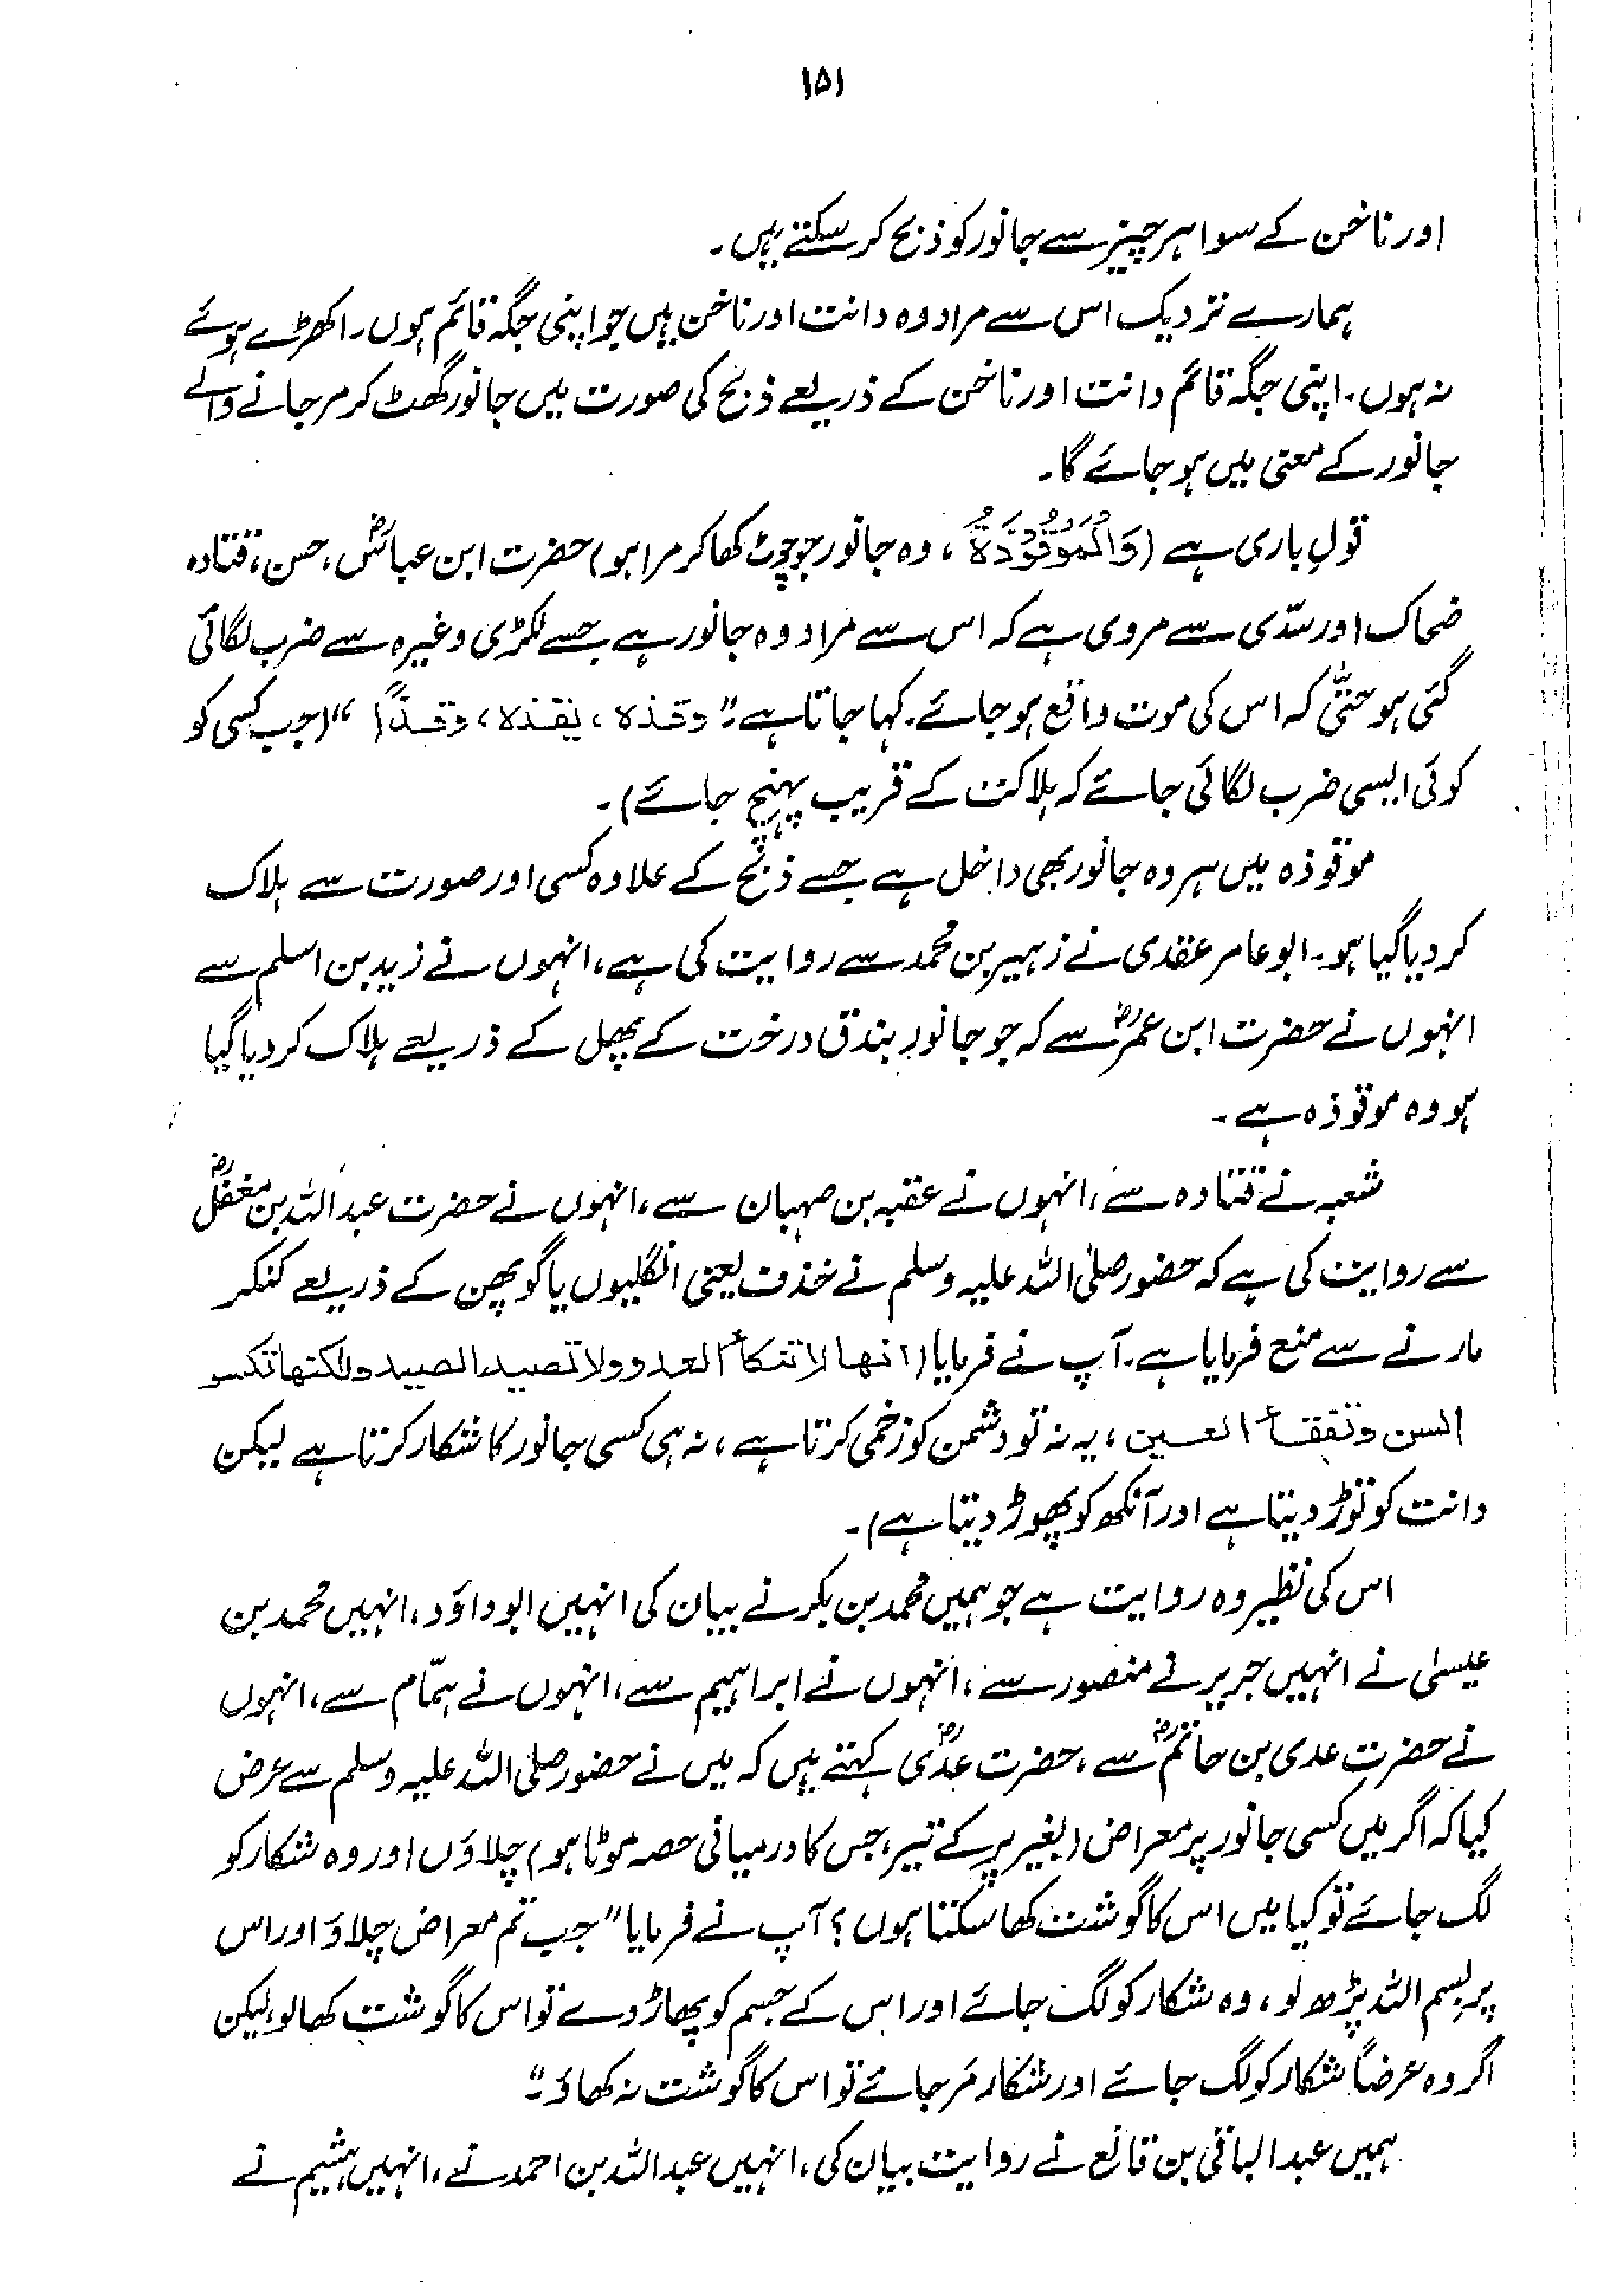 ۱۵۱
اور ناخن کے سوا ہر چیز سے جانور کو ذبح کر سکتے ہیں۔
ہمارے نزدیک اس سے مراد وہ دانت اور ناخن ہیں جو اپنی جگہ قائم ہوں۔ اکھڑے ہوئے
نہ ہوں۔ اپنی جگہ قائم دانت اور ناخن کے ذریعے ذبح کی صورت میں جانور گھٹ کر مر جانے والے
جانور کے معنی میں ہو جائے گا۔
قولِ باری ہے (وَالْمَوْقُوْذَةُ، وہ جانور جو چوٹ کھا کر مرا ہو) حضرت ابن عباسؓ، حسن، قتادہ
ضحاک اور سدّی سے مروی ہے کہ اس سے مراد وہ جانور ہے جسے لکڑی وغیرہ سے ضرب لگائی
گئی ہو حتّٰی کہ اس کی موت واقع ہو جائے۔ کہا جاتا ہے "وقذہ، یقذہ، وقذاً" (جب کسی کو
کوئی ایسی ضرب لگائی جائے کہ ہلاکت کے قریب پہنچ جائے)۔
موقوذہ میں ہر وہ جانور بھی داخل ہے جسے ذبح کے علاوہ کسی اور صورت سے ہلاک
کر دیا گیا ہو۔ ابو عامر عقدی نے زہیر بن محمد سے روایت کی ہے، انہوں نے زید بن اسلم سے
انہوں نے حضرت ابن عمرؓ سے کہ جو جانور بندق درخت کے پھل کے ذریعے ہلاک کر دیا گیا
ہو وہ موقوذہ ہے۔
شعبہ نے قتادہ سے، انہوں نے عقبہ بن صہبان سے، انہوں نے حضرت عبد اللہ بن مغفلؓ
سے روایت کی ہے کہ حضور صلی اللہ علیہ وسلم نے خذف یعنی انگلیوں یا گوپھن کے ذریعے کنکر
مارنے سے منع فرمایا ہے۔ آپ نے فرمایا (انھا لا تنکأ العدو ولا تصید الصید ولکنھا تکسر
السن وتفقأ العین، یہ نہ تو دشمن کو زخمی کرتا ہے، نہ ہی کسی جانور کا شکار کرتا ہے لیکن
دانت کو توڑ دیتا ہے اور آنکھ کو پھوڑ دیتا ہے)۔
اس کی نظیر وہ روایت ہے جو ہمیں محمد بن بکر نے بیان کی انہیں ابو داؤد، انہیں محمد بن
عیسیٰ نے انہیں جریر نے منصور سے، انہوں نے ابراہیم سے، انہوں نے ہمّام سے، انہوں
نے حضرت عدی بن حاتمؓ سے، حضرت عدیؓ کہتے ہیں کہ میں نے حضور صلی اللہ علیہ وسلم سے عرض
کیا کہ اگر میں کسی جانور پر معراض (بغیر پر کے تیر، جس کا درمیانی حصہ موٹا ہو) چلاؤں اور وہ شکار کو
لگ جائے تو کیا میں اس کا گوشت کھا سکتا ہوں؟ آپ نے فرمایا "جب تم معراض چلاؤ اور اس
پر بسم اللہ پڑھ لو، وہ شکار کو لگ جائے اور اس کے جسم کو پھاڑ دے تو اس کا گوشت کھا لو، لیکن
اگر وہ عرضاً شکار کو لگ جائے اور شکار مَر جائے تو اس کا گوشت نہ کھاؤ۔"
ہمیں عبد الباقی بن قانع نے روایت بیان کی، انہیں عبد اللہ بن احمد نے، انہیں ہشیم نے